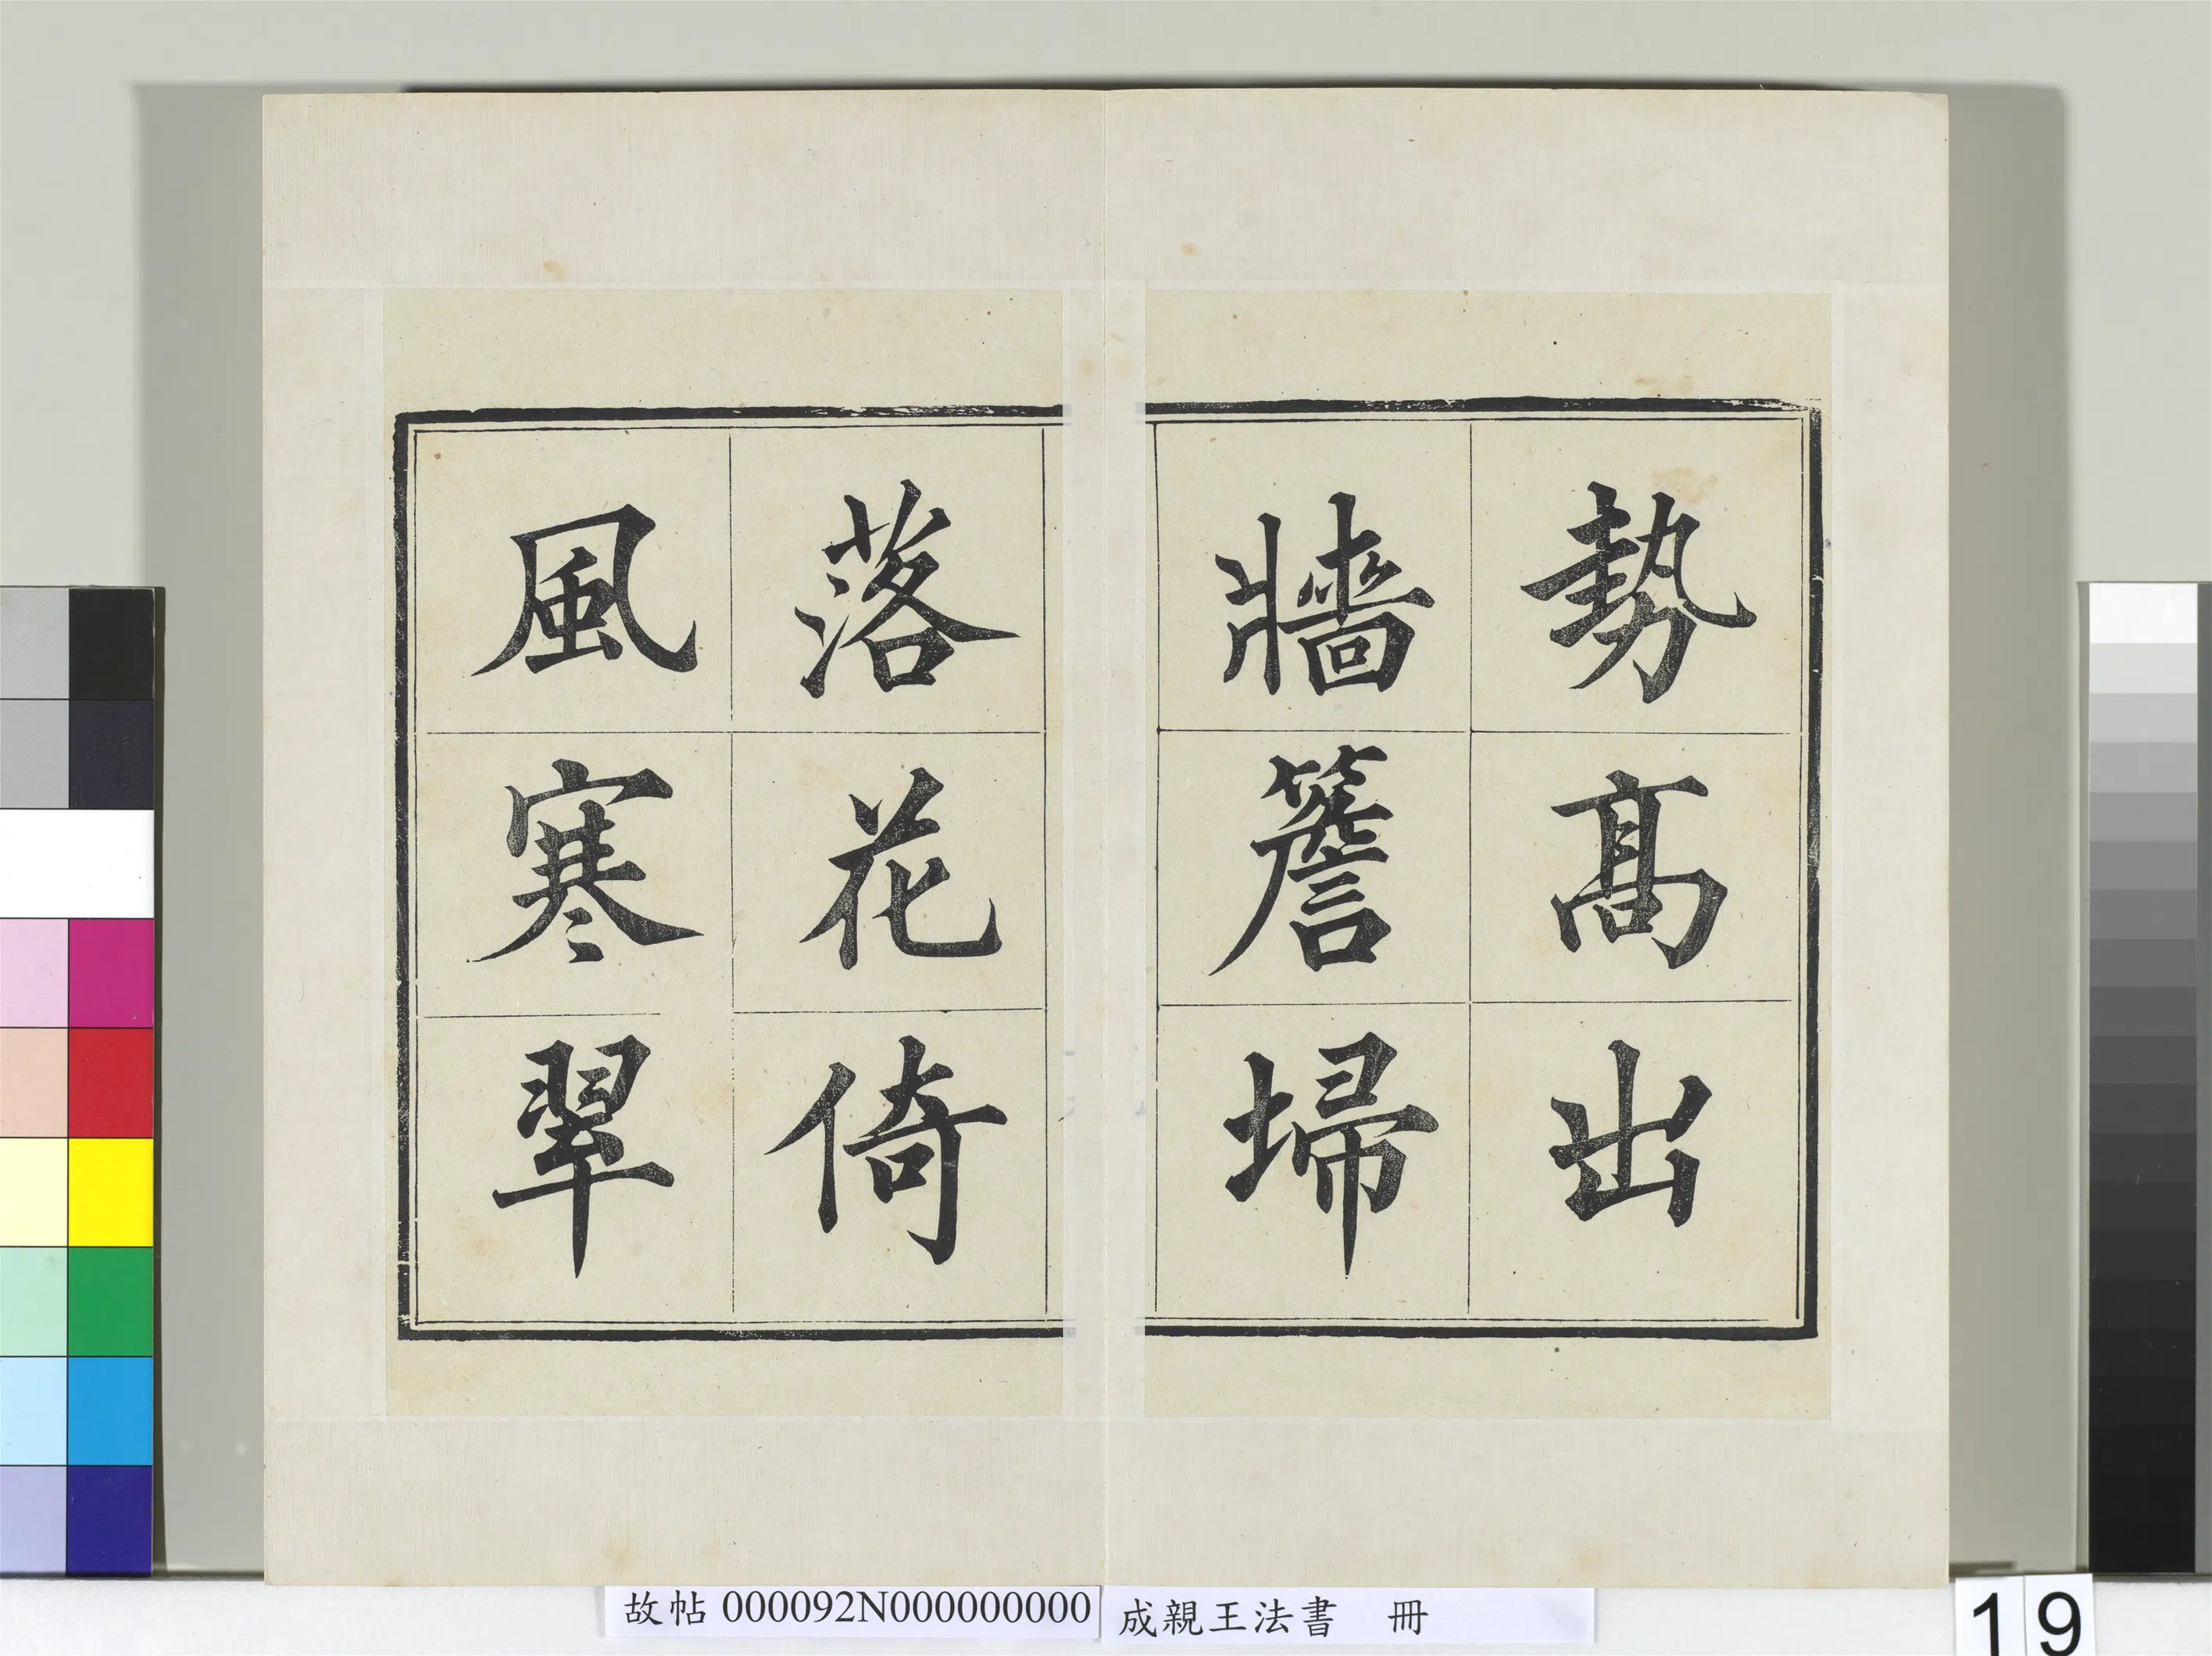 勢髙出
牆簷埽
落花倚
風寒翠
故帖 000092N000000000
成親王法書 冊
19